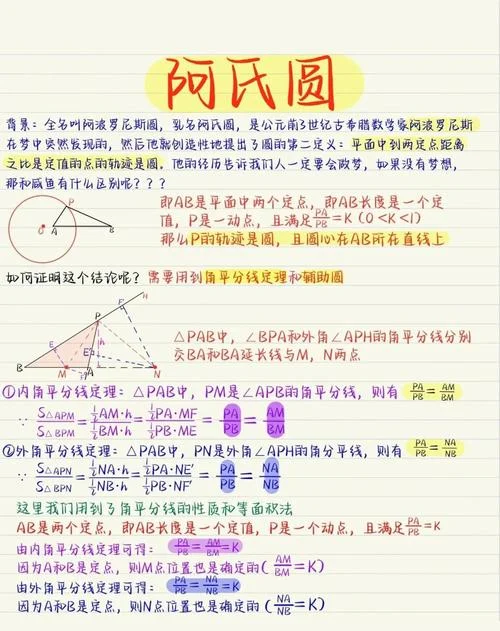 阿氏圆
背景：全名叫阿波罗尼斯圆，乳名阿氏圆，是公元前3世纪古希腊数学家阿波罗尼斯
在梦中突然发现的，然后他就创造性地提出了圆的第二定义：平面中到两定点距离
之比是定值的点的轨迹是圆。他的经历告诉我们人一定要会做梦，如果没有梦想，
那和咸鱼有什么区别呢？？？
即AB是平面中两个定点，即AB长度是一个定
值，P是一动点，且满足PA/PB=K（0<K<1）
那么P的轨迹是圆，且圆心在AB所在直线上
P
O
A
B
如何证明这个结论呢？需要用到角平分线定理和辅助圆
H
F'
P
E
E'
B
M
A
N
△PAB中，∠BPA和外角∠APH的角平分线分别
交BA和BA延长线与M，N两点
①内角平分线定理：△PAB中，PM是∠APB的角平分线，则有 PA/PB=AM/BM
∵ S△APM/S△BPM=½AM·h/½BM·h=½PA·MF/½PB·ME=PA/PB=AM/BM
②外角平分线定理：△PAB中，PN是外角∠APH的角分平线，则有 PA/PB=NA/NB
∵ S△APN/S△BPN=½NA·h/½NB·h=½PA·NE'/½PB·NF'=PA/PB=NA/NB
这里我们用到了角平分线的性质和等面积法
AB是两个定点，即AB长度是一个定值，P是一个动点，且满足PA/PB=K
由内角平分线定理可得：PA/PB=AM/BM=K
因为A和B是定点，则M点位置也是确定的（AM/BM=K）
由外角平分线定理可得：PA/PB=NA/NB=K
因为A和B是定点，则N点位置也是确定的（NA/NB=K）